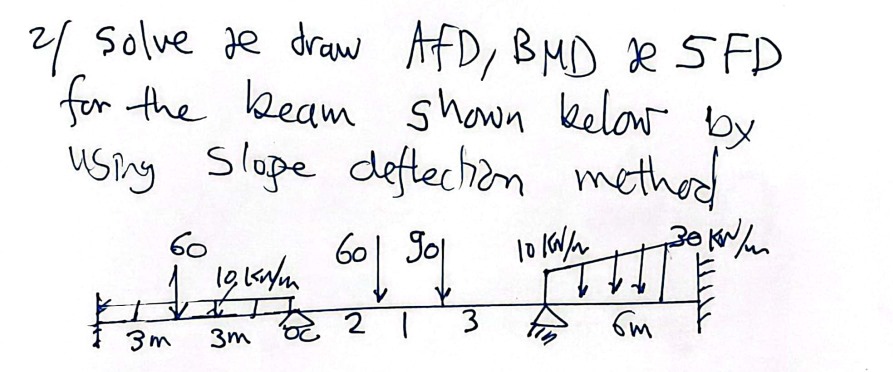 2/ Solve & draw AFD, BMD & SFD
for the beam shown below by
using Slope deflection method
60 10 KN/m 60 90 10 KN/m 30 KN/m
3m 3m 2 1 3 6m